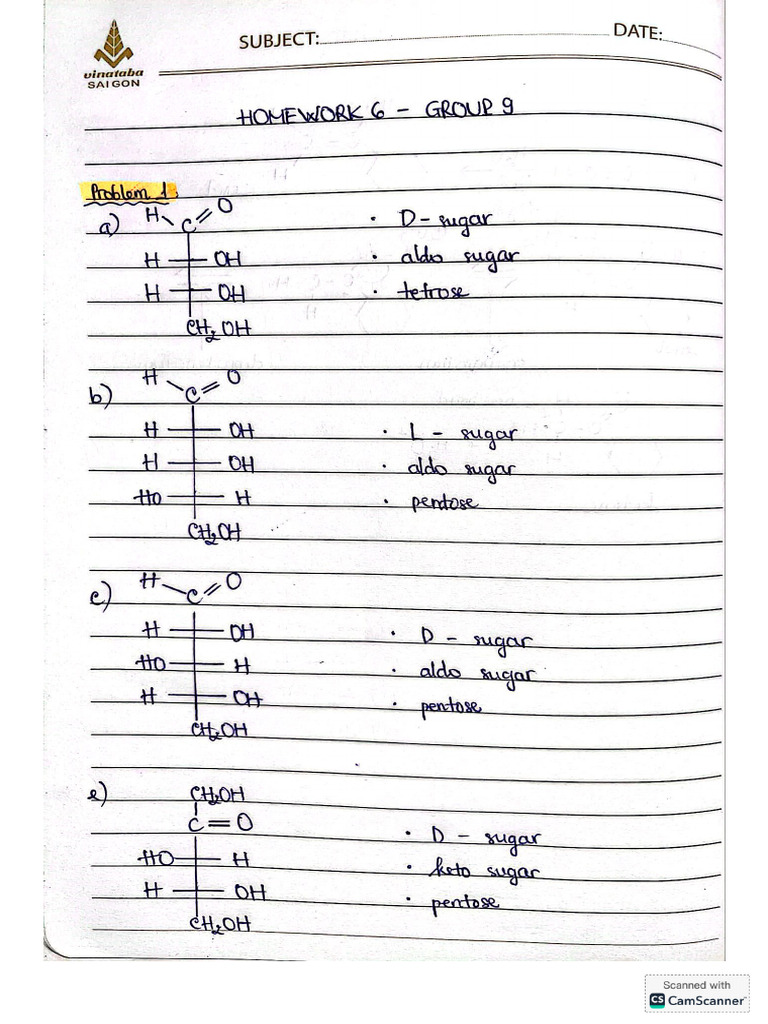 vinataba
SAIGON
SUBJECT:
DATE:
HOMEWORK 6 - GROUP 9
Problem 1:
a)
H C = O
• D - sugar
H OH
• aldo sugar
H OH
• tetrose
CH2OH
b)
H C = O
H OH
• L - sugar
H OH
• aldo sugar
HO H
• pentose
CH2OH
c)
H C = O
H OH
• D - sugar
HO H
• aldo sugar
H OH
• pentose
CH2OH
e)
CH2OH
C = O
• D - sugar
HO H
• keto sugar
H OH
• pentose
CH2OH
Scanned with
CS CamScanner